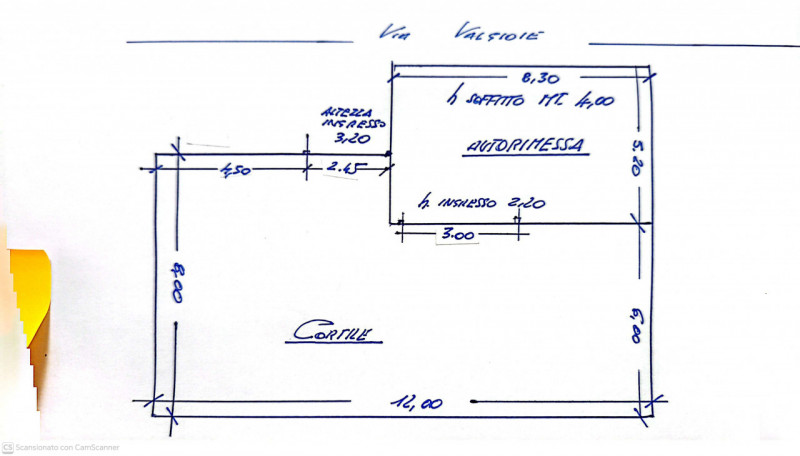 VIA VALGIOIE
8,30
h SOFFITTO MT 4,00
ALTEZZA
INGRESSO
3,20
AUTORIMESSA
5.20
4,50
2.45
h. INGRESSO 2,20
3.00
8,00
CORTILE
6,00
12,00
CS Scansionato con CamScanner